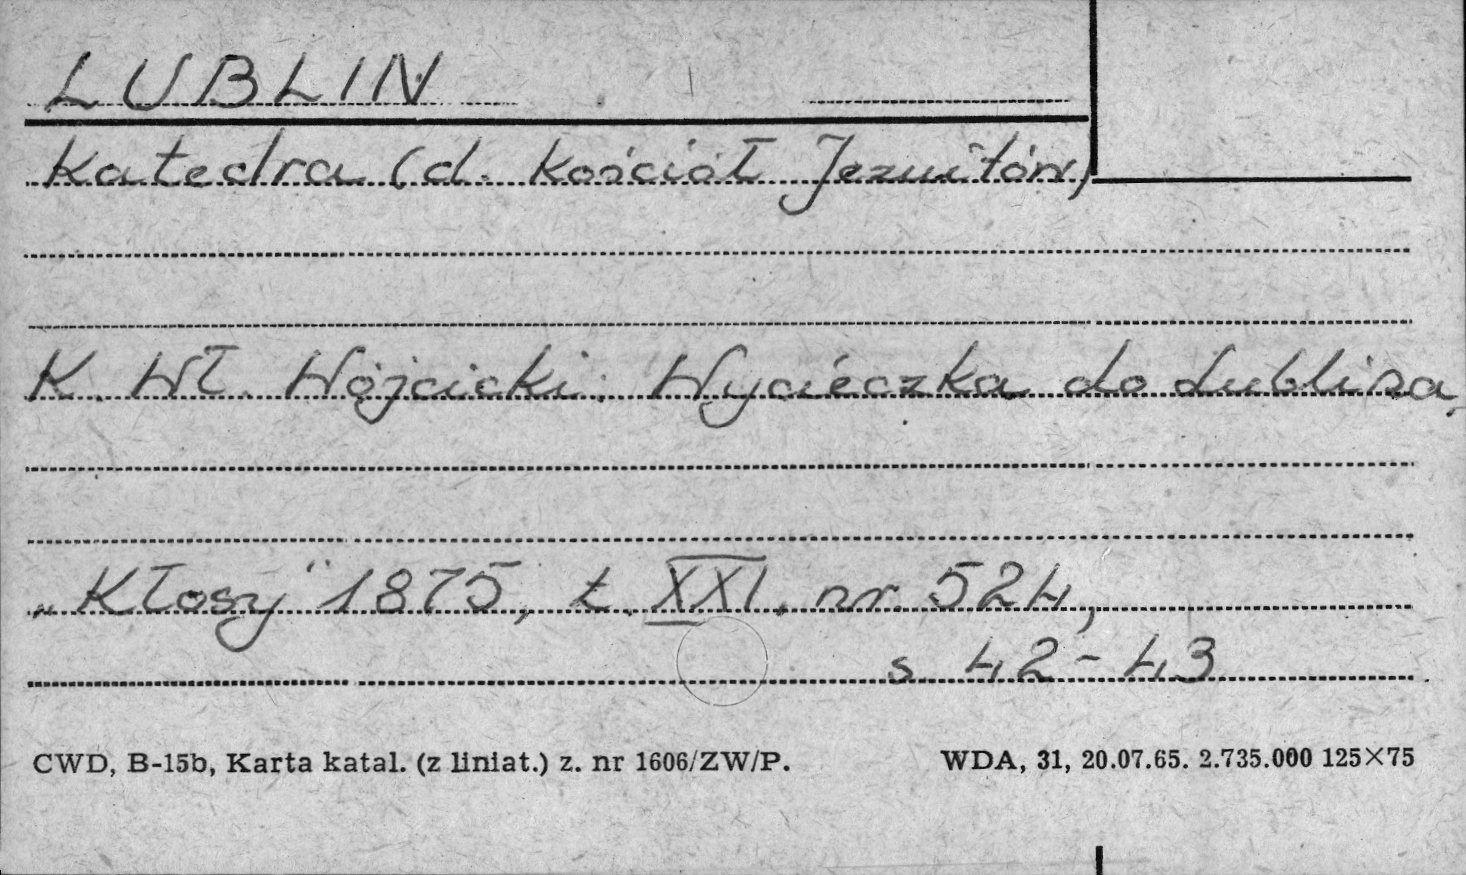 LUBLIN
Katedra (d. Kościół Jezuitów)
K. Wł. Wójcicki: Wycieczka do Lublina,
„Kłosy" 1875, t. XXI, nr. 524,
s. 42-43
CWD, B-15b, Karta katal. (z liniat.) z. nr 1606/ZW/P. WDA, 31, 20.07.65. 2.735.000 125×75